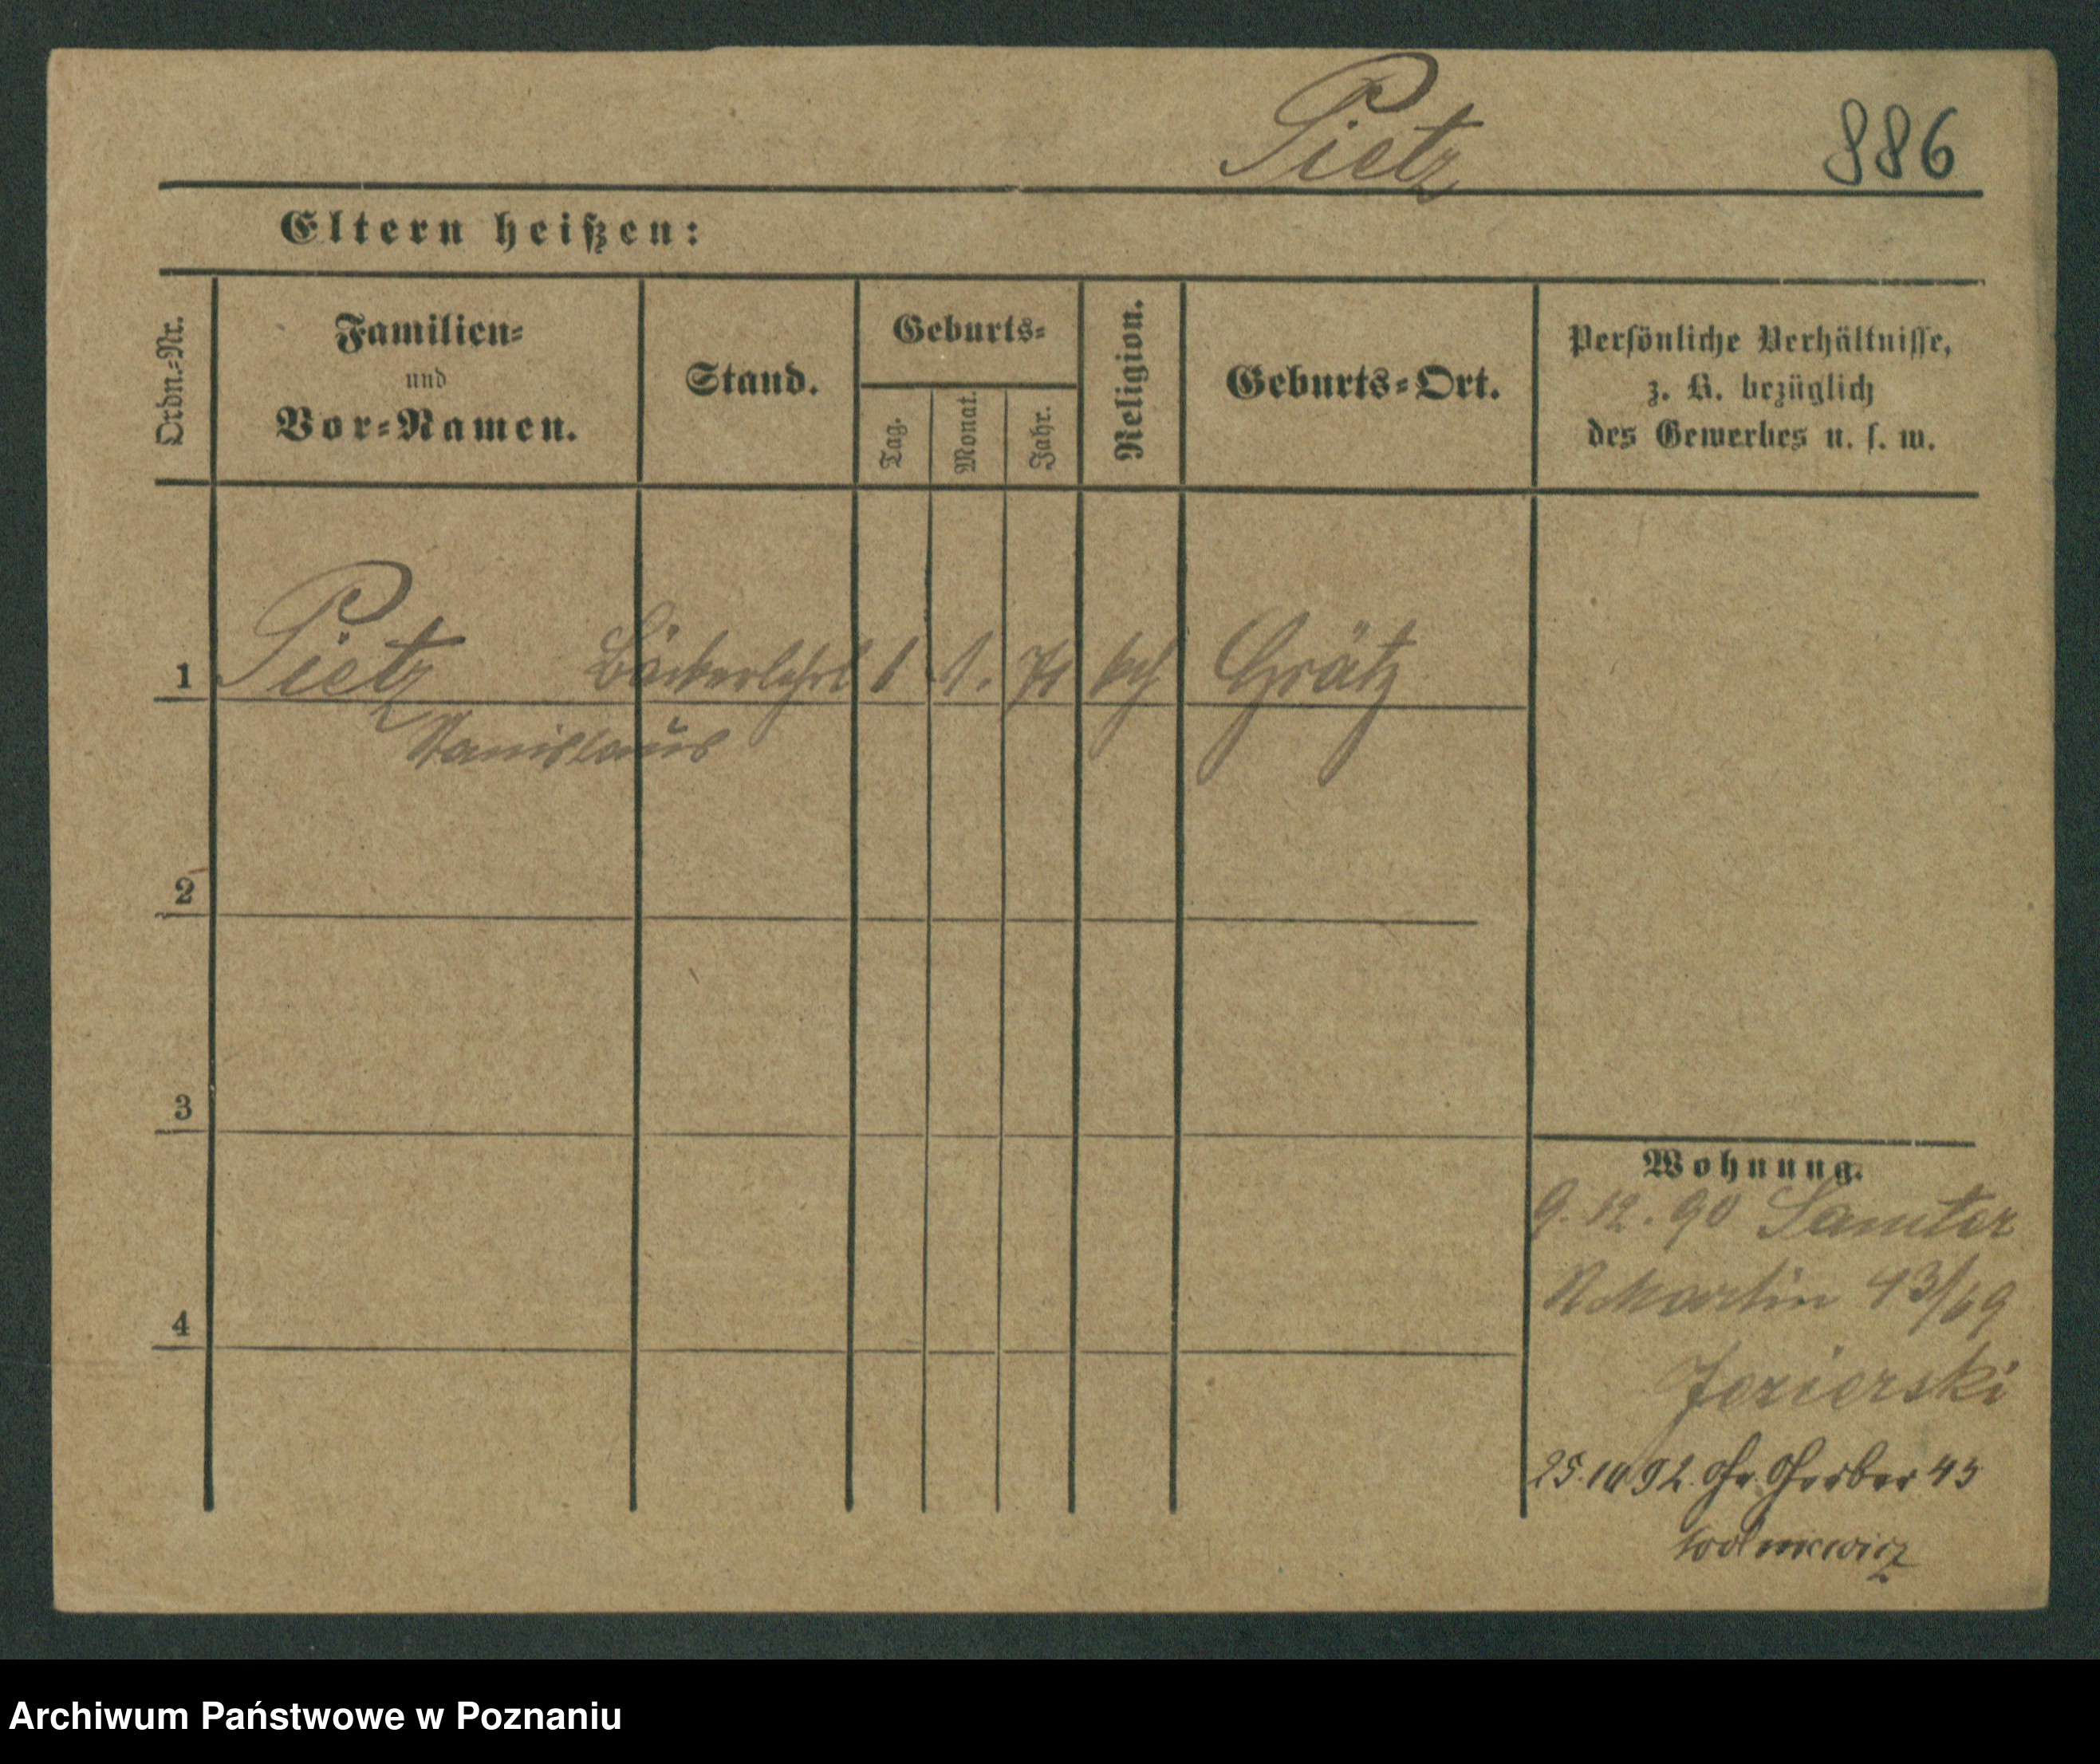 Pietz 886
Eltern heißen:
Ordn.-Nr. Familien- und Vor-Namen. Stand. Geburts- Tag. Monat. Jahr. Religion. Geburts-Ort. Persönliche Verhältnisse, z. B. bezüglich des Gewerbes u. s. w.
1 Pietz Bäckerlehrl 1. kath Grätz
Stanislaus
2
3
4
Wohnung.
9. 12. 90 Samter
St Martin 43/69
Jezierski
25.10.92. Gr. Gerber 45
Archiwum Państwowe w Poznaniu